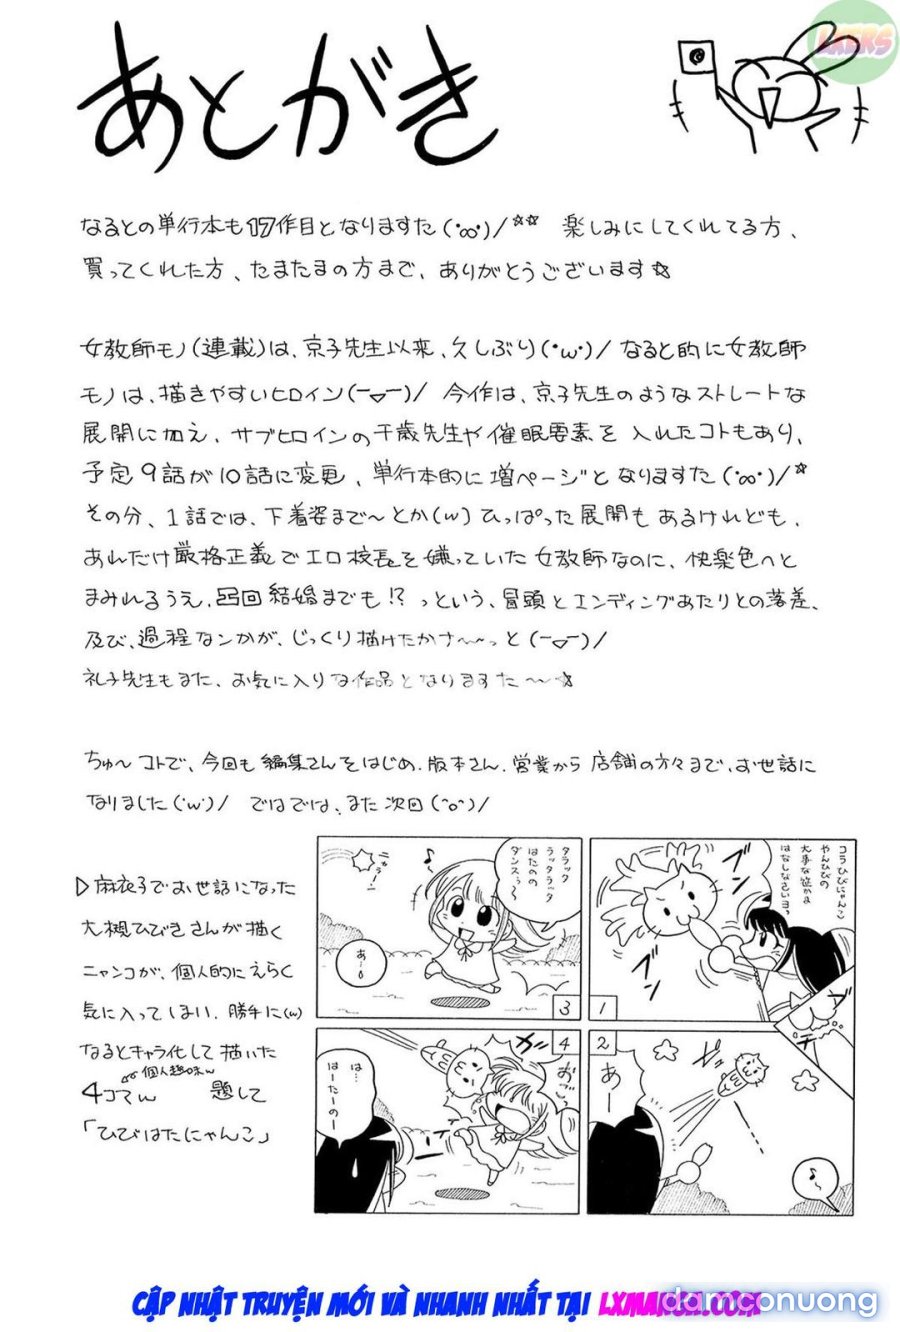 あとがき
なるとの単行本も17作目となりますた(･∞･)/☆☆ 楽しみにしてくれてる方、
買ってくれた方、たまたまの方まで、ありがとうございます☆
女教師モノ(連載)は、京子先生以来、久しぶり(･ω･)/ なると的に女教師
モノは、描きやすいヒロイン(ー▽ー)/ 今作は、京子先生のようなストレートな
展開に加え、サブヒロインの千歳先生や催眠要素を入れたコトもあり、
予定9話が10話に変更、単行本的に増ページとなりますた(･∞･)/☆
その分、1話では、下着姿まで〜とか(w) ひっぱった展開もあるけれども、
あれだけ厳格正義でエロ校長を嫌っていた女教師なのに、快楽色へと
まみれるうえ、凸凹結婚までも!? っという、冒頭とエンディングあたりとの落差、
及び、過程なンかが、じっくり描けたかナ〜〜っと(ー▽ー)/
礼子先生もまた、お気に入りな作品となりますた〜〜☆
ちゅ〜コトで、今回も編集さんをはじめ、版本さん、営業から店舗の方々まで、お世話に
なりました(･w･)/ ではでは、また次回(^o^)/
▷麻衣子でお世話になった
大槻ひびきさんが描く
ニャンコが、個人的にえらく
気に入ってしまい、勝手に(w)
なるとキャラ化して描いた
個人趣味w
4コマw 題して
「ひびはたにゃんこ」
コラひびにゃんこ
やんひびの
大事な笹かま
はなしなさいヨっ
1
2
あー
♪
タラッタ
ラッタラッタ
はたのの
ダンスぅ〜
♪
あ…
3
4
おごっ
は…
はーたーのー
CẬP NHẬT TRUYỆN MỚI VÀ NHANH NHẤT TẠI LXMANGA.COM
damconuong
LXERS